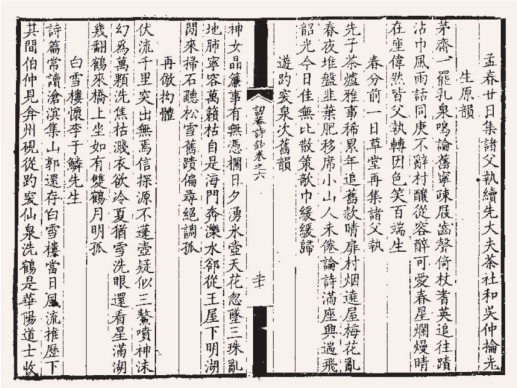 孟春廿日集諸父執續先大夫茶社和吳仲掄先
生原韻
茅齋一罷乳泉鳴論舊寧疎屐齒聲倚杖耆英追往蹟
沾巾風雨話同庚不辭村釀從容醉可愛春星爛熳晴
在座儼然皆父執轉因色笑百端生
春分前一日草堂再集諸父執
先子茶壚雅事稀累年追舊款晴扉村烟遶屋梅花亂
春夜堆盤韭葉肥移席小山人未倦論詩滿座興遄飛
韶光今日佳無比散策欹巾緩緩歸
遊趵突泉次舊韻
菴詩鈔卷之六
神女晶簾事有無憑欄日夕湧氷壺天花忽墜三珠亂
地肺寧容萬籟枯自是海門奔濼水卻從王屋下明湖
閒來掃石聽松雪舊蹟偏尋絕調孤
再倣拗體
伏流千里突出無焉信探源不蓬壺疑似三鰲噴神沫
幻為萬顆洗焦枯濺衣欲冷夏猶雪洗眼還看星滿湖
幾翻鶴來橋上坐如有雙鶴月明孤
白雪樓懷李于鱗先生
詩篇常讀滄溟集山郭還存白雪樓當日風流推歷下
其間伯仲見弇州硯從趵突仙泉洗鶴是華陽道士收